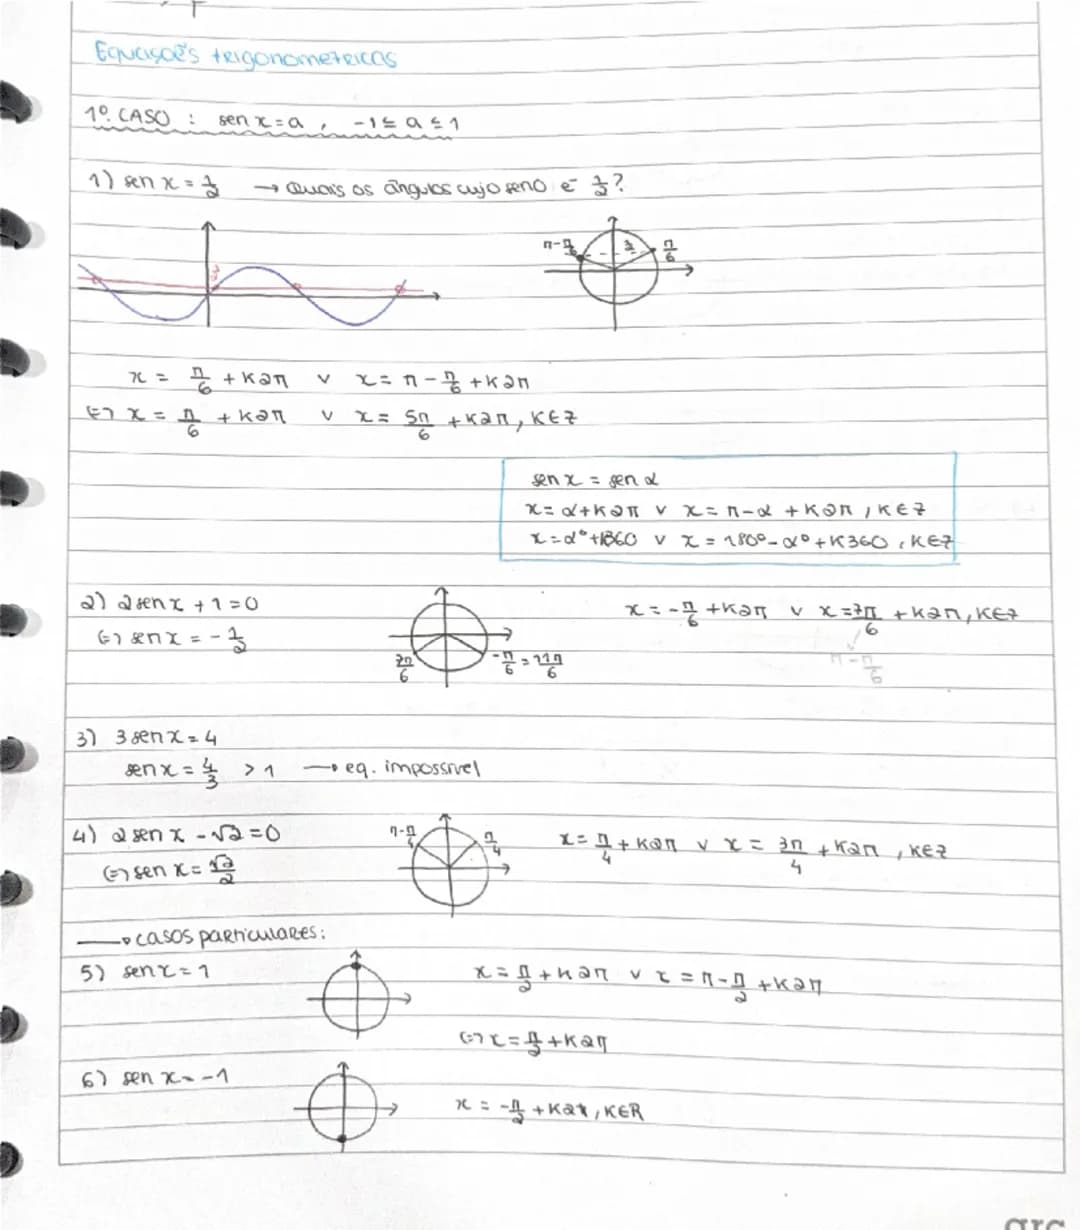 Equaisoẽs trigonometricas
1º. CASO : sen x = a , -1 ≤ a ≤ 1
1) sen x = 1/2 → Quais os ângulos cujo seno é 1/2?
1/2
π-π/6 1/2 π/6
x = π/6 + k2π v x = π - π/6 + k2π
(=) x = π/6 + k2π v x = 5π/6 + k2π, k∈Z
sen x = sen α
x = α + k2π v x = π - α + k2π, k∈Z
x = α° + k360 v x = 180° - α° + k360, k∈Z
2) 2 sen x + 1 = 0 x = -π/6 + k2π v x = 7π/6 + k2π, k∈Z
(=) sen x = -1/2
7π/6 -π/6 = 11π/6 π - π/6
3) 3 sen x = 4
sen x = 4/3 > 1 → eq. impossível
4) 2 sen x - √2 = 0 π-π/4 π/4 x = π/4 + k2π v x = 3π/4 + k2π, k∈Z
(=) sen x = √2/2
→ casos particulares:
5) sen x = 1 x = π/2 + k2π v x = π - π/2 + k2π
(=) x = π/2 + k2π
6) sen x = -1
x = -π/2 + k2π, k∈R